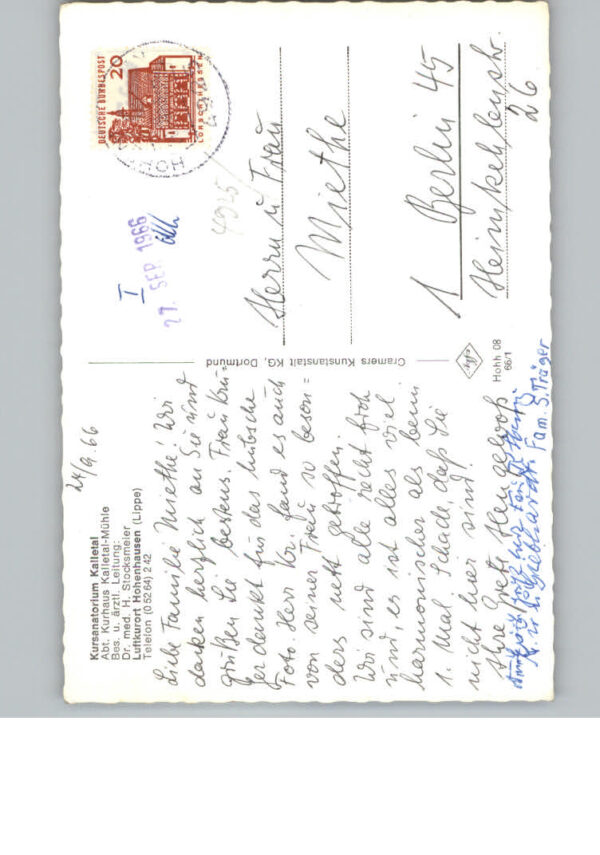 Kursanatorium Kalletal
Abt. Kurhaus Kalletal-Mühle
Bes. u. ärztl. Leitung:
Dr. med. H. Stocksmeier
Luftkurort Hohenhausen (Lippe)
Telefon (0 52 64) 2 42
24/9.66
Liebe Familie Miethe! Wir
danken herzlich an Sie und
grüßen Sie bestens. Frau
dankt für das hübsche
Foto. Herr Kr. fand es auch
von seiner Frau so beson=
ders nett getroffen.
Wir sind alle recht froh
und, es ist alles viel
harmonischer als beim
1. Mal. Schade, daß Sie
nicht hier sind!
Ihre Grete
Fam. S. Träger
Cramers Kunstanstalt KG, Dortmund
Hohh 08
66/1
DEUTSCHE BUNDESPOST
20
LORSCH/HESSEN
I
27. SEP. 1966
4925
Herrn u Frau
Miethe
1 Berlin 45
26